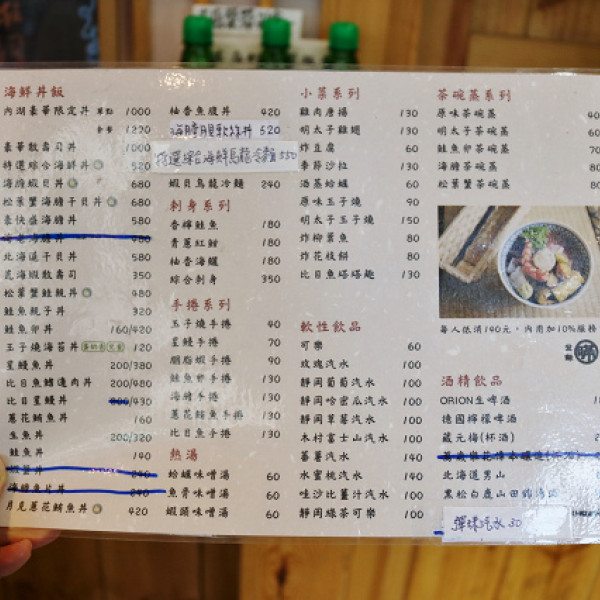 海鮮丼飯
內湖豪華限定丼 單點 1000
套餐 1220
豪華散壽司丼 1000
特選綜合海鮮丼 520
海膽蝦貝丼 680
松葉蟹海膽干貝丼 680
豪快盛海膽丼 580
480
北海道海鮮丼 580
花海蝦散壽司 350
松葉蟹鮭親丼 450
鮭魚親子丼 320
鮭魚卵丼 160/420
玉子燒海苔丼 120
星鰻魚丼 200/380
比目魚鰭邊肉丼 200/480
比目星鰻丼 200/430
蔥花鮪魚丼 160
生魚丼 200/320
鮭魚丼 140
蟹丼 240
海鱺魚片丼 240
月見蔥花鮪魚丼 420
柚香魚腹丼 420
海膽蝦軟絲丼 520
特選綜合海鮮烏龍冷麵 550
蝦貝烏龍冷麵 240
刺身系列
香檸鮭魚 180
青蔥紅魽 180
柚香海鱺 180
綜合刺身 350
手捲系列
玉子燒手捲 40
星鰻手捲 70
胭脂蝦手捲 90
鮭魚卵手捲 130
海膽手捲 130
蔥花鮪魚手捲 130
比目魚手捲 130
熱湯
蛤蠣味噌湯 60
魚骨味噌湯 60
蝦頭味噌湯 60
小菜系列
雞肉唐揚 130
明太子雞翅 130
炸豆腐 60
季節沙拉 130
酒蒸蛤蠣 60
原味玉子燒 90
明太子玉子燒 150
炸柳葉魚 80
炸花枝餅 80
比目魚塔塔趣 130
軟性飲品
可樂 60
玫瑰汽水 100
靜岡葡萄汽水 100
靜岡哈密瓜汽水 100
靜岡草莓汽水 100
木村富士山汽水 100
蕃薯汽水 100
水蜜桃汽水 100
哇沙比薑汁汽水 100
靜岡綠茶可樂 100
茶碗蒸系列
原味茶碗蒸
明太子茶碗蒸
鮭魚卵茶碗蒸
海膽茶碗蒸
松葉蟹茶碗蒸
每人低消140元，內用加10%服務
酒精飲品
ORION生啤酒
德國檸檬啤酒
蔵元梅(杯酒)
北海道男山
黑松白鹿山田錦
彈珠汽水 50